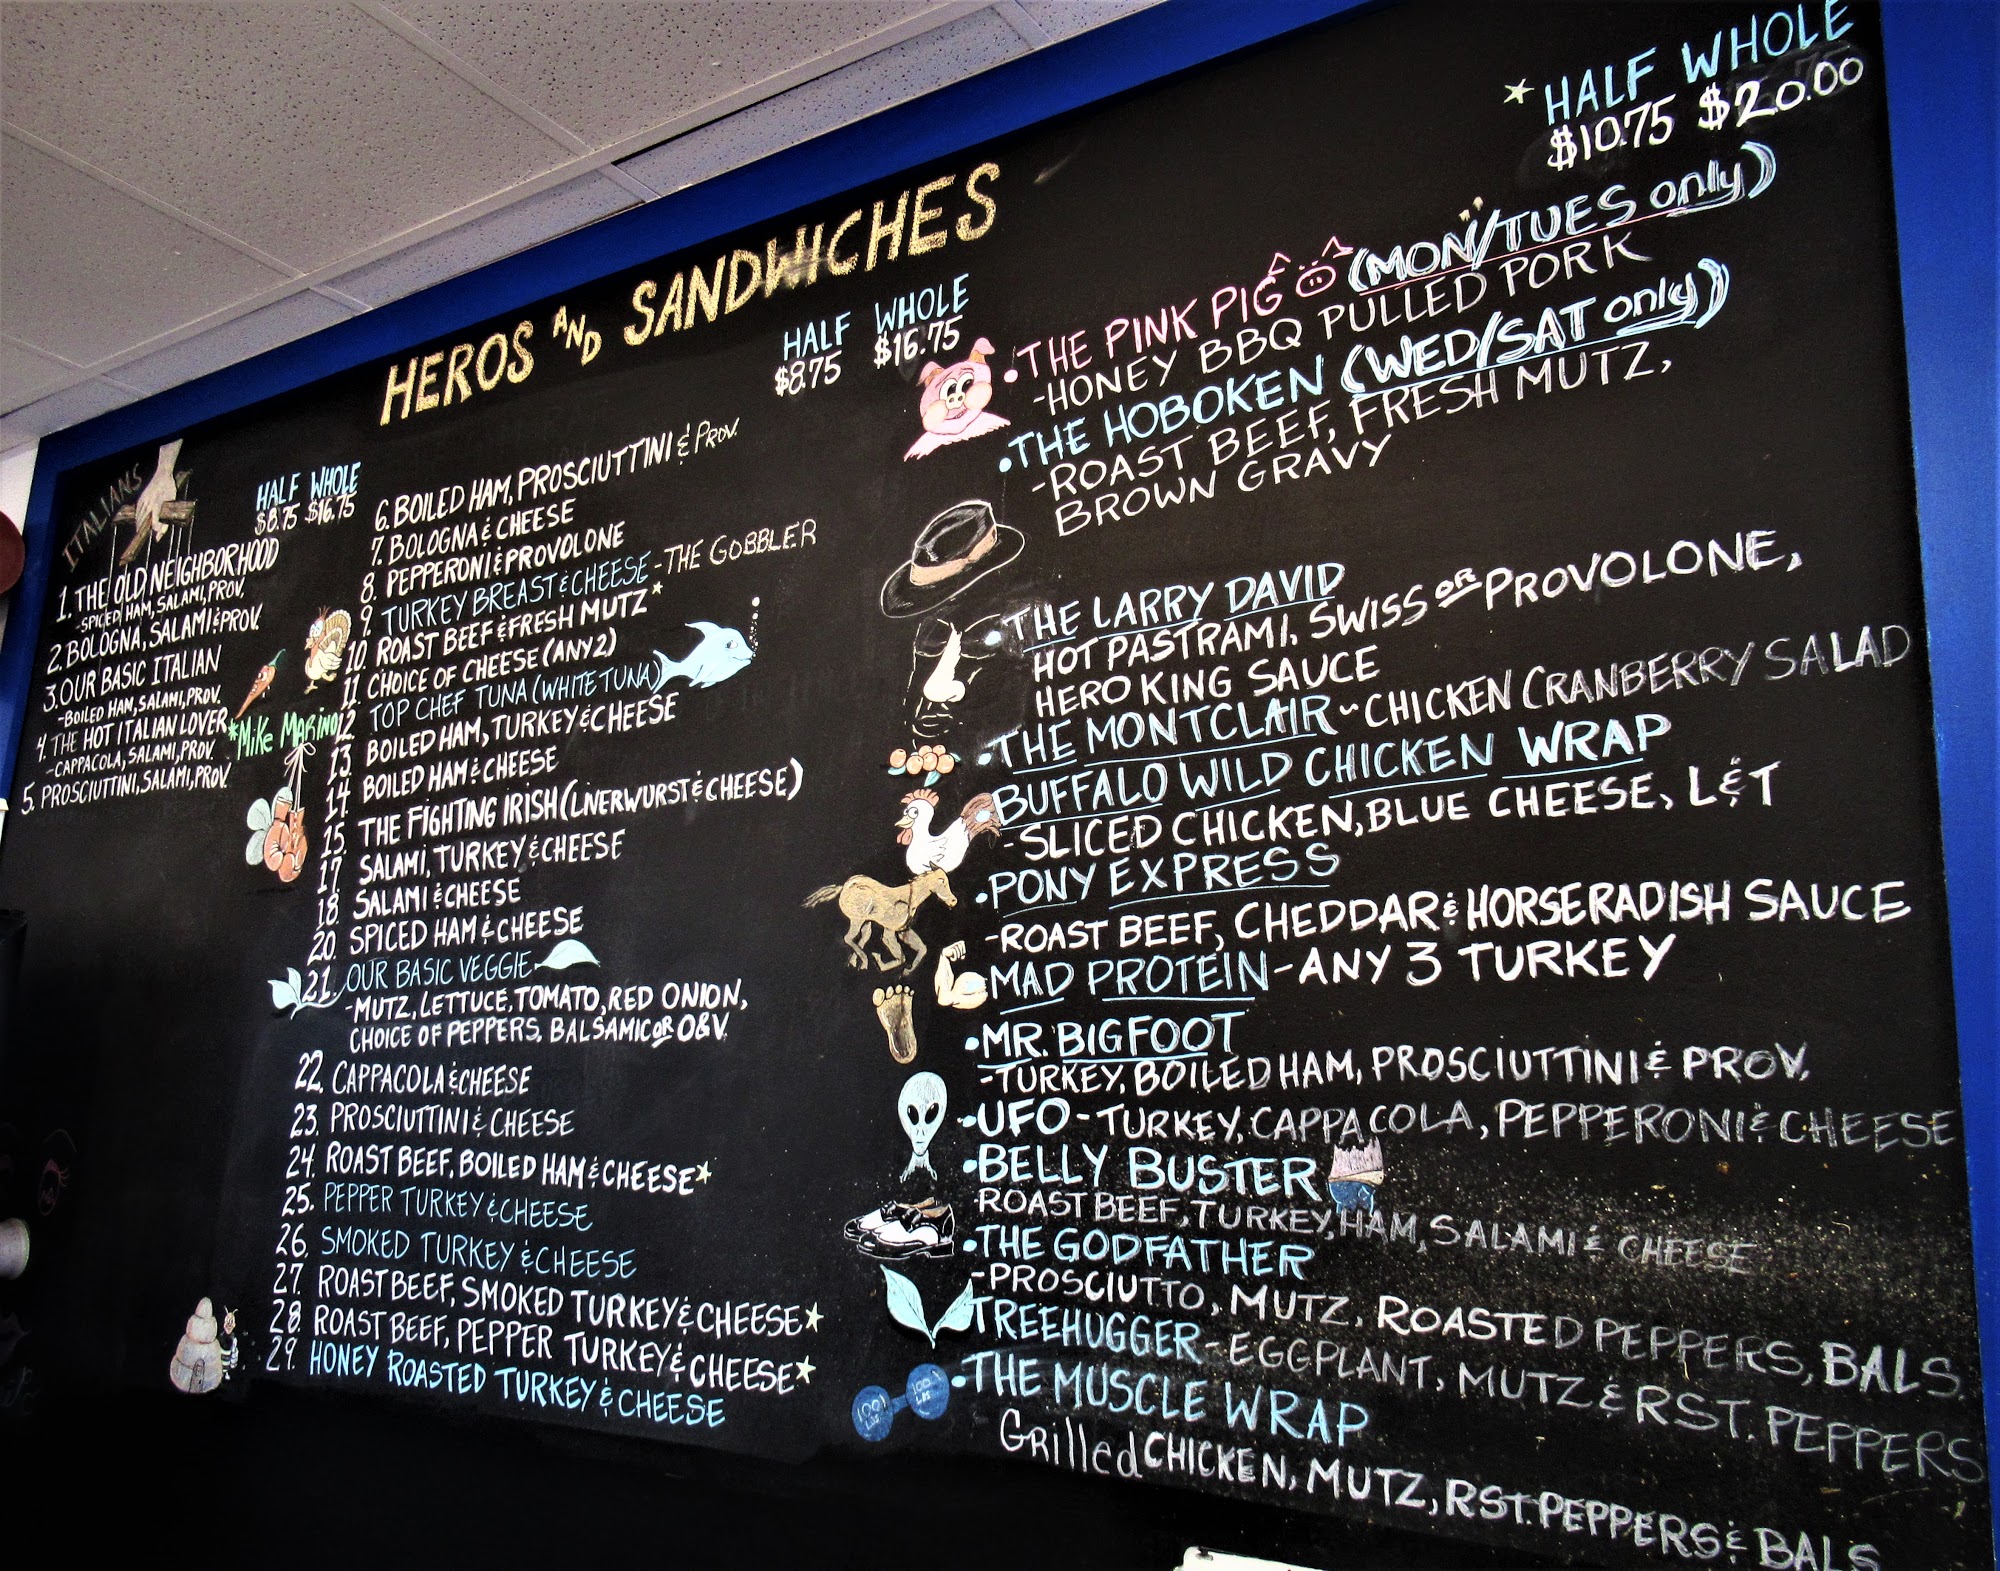 HEROS AND SANDWICHES
ITALIANS
HALF WHOLE
$8.75 $16.75
1. THE OLD NEIGHBORHOOD
-SPICED HAM, SALAMI, PROV.
2. BOLOGNA, SALAMI & PROV.
3. OUR BASIC ITALIAN
-BOILED HAM, SALAMI, PROV.
4. THE HOT ITALIAN LOVER
-CAPPACOLA, SALAMI, PROV.
5. PROSCIUTTINI, SALAMI, PROV.
*Mike Marino
HALF WHOLE
$8.75 $16.75
6. BOILED HAM, PROSCIUTTINI & PROV.
7. BOLOGNA & CHEESE
8. PEPPERONI & PROVOLONE
9. TURKEY BREAST & CHEESE - THE GOBBLER
10. ROAST BEEF & FRESH MUTZ*
11. CHOICE OF CHEESE (ANY 2)
12. TOP CHEF TUNA (WHITE TUNA)
13. BOILED HAM, TURKEY & CHEESE
14. BOILED HAM & CHEESE
15. THE FIGHTING IRISH (LIVERWURST & CHEESE)
17. SALAMI, TURKEY & CHEESE
18. SALAMI & CHEESE
20. SPICED HAM & CHEESE
21. OUR BASIC VEGGIE
-MUTZ, LETTUCE, TOMATO, RED ONION,
CHOICE OF PEPPERS, BALSAMIC OR O&V.
22. CAPPACOLA & CHEESE
23. PROSCIUTTINI & CHEESE
24. ROAST BEEF, BOILED HAM & CHEESE*
25. PEPPER TURKEY & CHEESE
26. SMOKED TURKEY & CHEESE
27. ROAST BEEF, SMOKED TURKEY & CHEESE*
28. ROAST BEEF, PEPPER TURKEY & CHEESE*
29. HONEY ROASTED TURKEY & CHEESE
*HALF WHOLE
$10.75 $20.00
•THE PINK PIG (MON/TUES only)
-HONEY BBQ PULLED PORK
•THE HOBOKEN (WED/SAT only)
-ROAST BEEF, FRESH MUTZ,
BROWN GRAVY
•THE LARRY DAVID
HOT PASTRAMI, SWISS OR PROVOLONE,
HERO KING SAUCE
•THE MONTCLAIR ~ CHICKEN CRANBERRY SALAD
BUFFALO WILD CHICKEN WRAP
-SLICED CHICKEN, BLUE CHEESE, L & T
•PONY EXPRESS
-ROAST BEEF, CHEDDAR & HORSERADISH SAUCE
MAD PROTEIN - ANY 3 TURKEY
•MR. BIGFOOT
-TURKEY, BOILED HAM, PROSCIUTTINI & PROV.
•UFO - TURKEY, CAPPACOLA, PEPPERONI & CHEESE
•BELLY BUSTER
ROAST BEEF, TURKEY, HAM, SALAMI & CHEESE
•THE GODFATHER
-PROSCIUTTO, MUTZ, ROASTED PEPPERS, BALS.
TREEHUGGER - EGGPLANT, MUTZ & RST. PEPPERS
•THE MUSCLE WRAP
100 LBS 100 LBS
Grilled CHICKEN, MUTZ, RST. PEPPERS & BALS